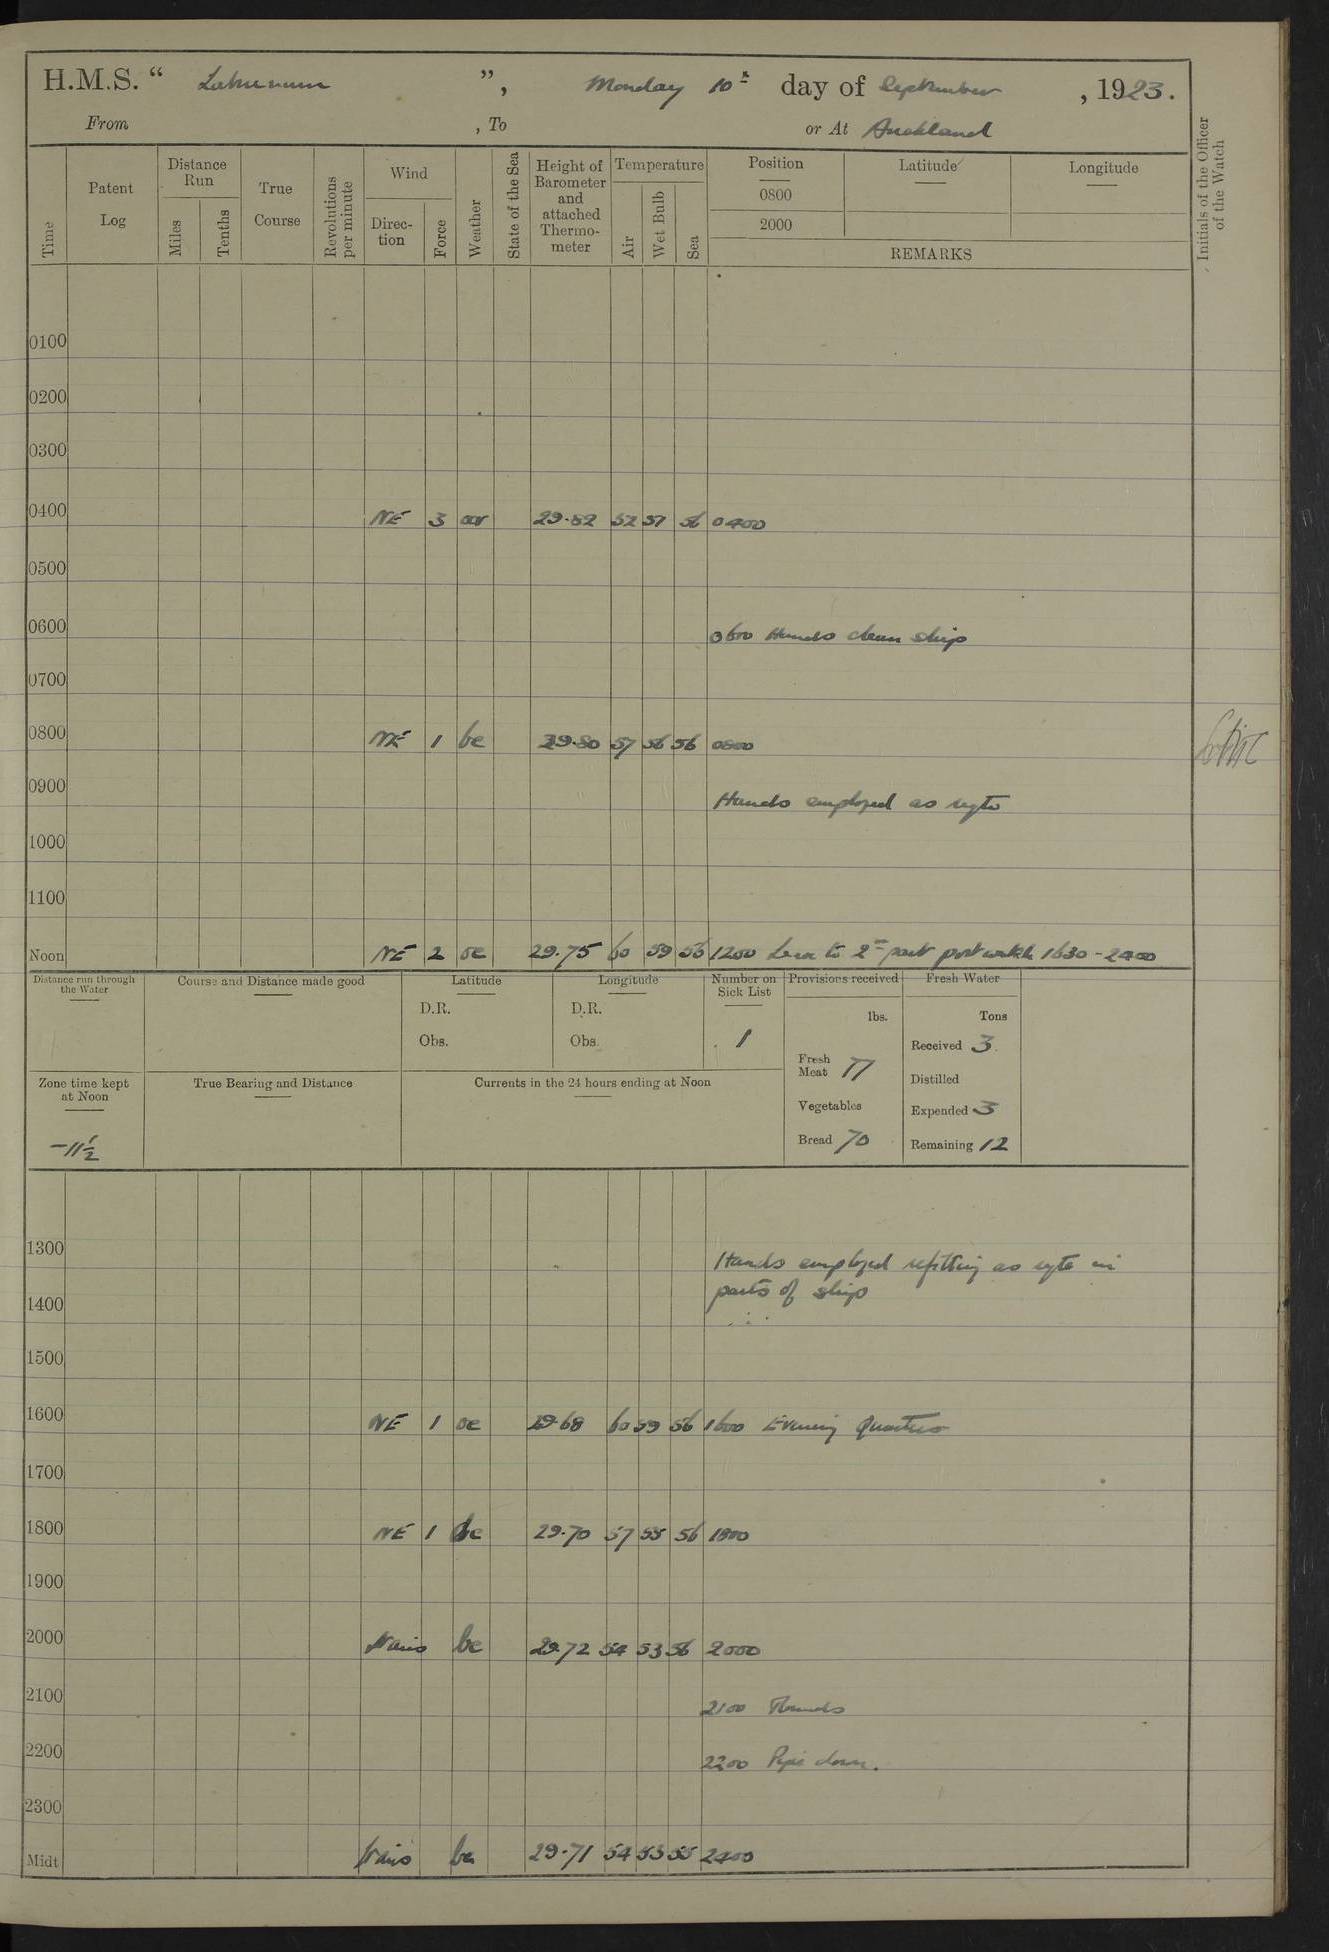 H.M.S. “ Laburnum ”, Monday 10th day of September, 1923.
From , To or At Auckland
Initials of the Officer of the Watch
Time
Patent Log
Distance Run
Miles
Tenths
True Course
Revolutions per minute
Wind
Direc-tion
Force
Weather
State of the Sea
Height of Barometer and attached Thermo-meter
Temperature
Air
Wet Bulb
Sea
Position Latitude Longitude
0800
2000
REMARKS
0100
0200
0300
0400 NE 3 29.82 57 56 0400
0500
0600 0600 Hands clean ship
0700
0800 NE 1 bc 29.80 57 56 56 0800
0900 Hands employed as reqte
1000
1100
Noon NE 2 oc 29.75 60 59 56 1200 Leave to 2nd part port watch 1630 - 2400
Distance run through the Water
Course and Distance made good
Latitude
D.R.
Obs.
Longitude
D.R.
Obs.
Number on Sick List
1
Provisions received
lbs.
Fresh Meat 77
Vegetables
Bread 70
Fresh Water
Tons
Received 3
Distilled
Expended 3
Remaining 12
Zone time kept at Noon
-11½
True Bearing and Distance
Currents in the 24 hours ending at Noon
1300 Hands employed refitting as reqte in
parts of ship
1400
1500
1600 NE 1 oc 29.68 60 59 56 1600 Evening Quarters
1700
1800 NE 1 bc 29.70 57 55 56 1800
1900
2000 bc 29.72 54 53 56 2000
2100 2100 Rounds
2200 2200 Pipe down.
2300
Midt bc 29.71 54 53 55 2400